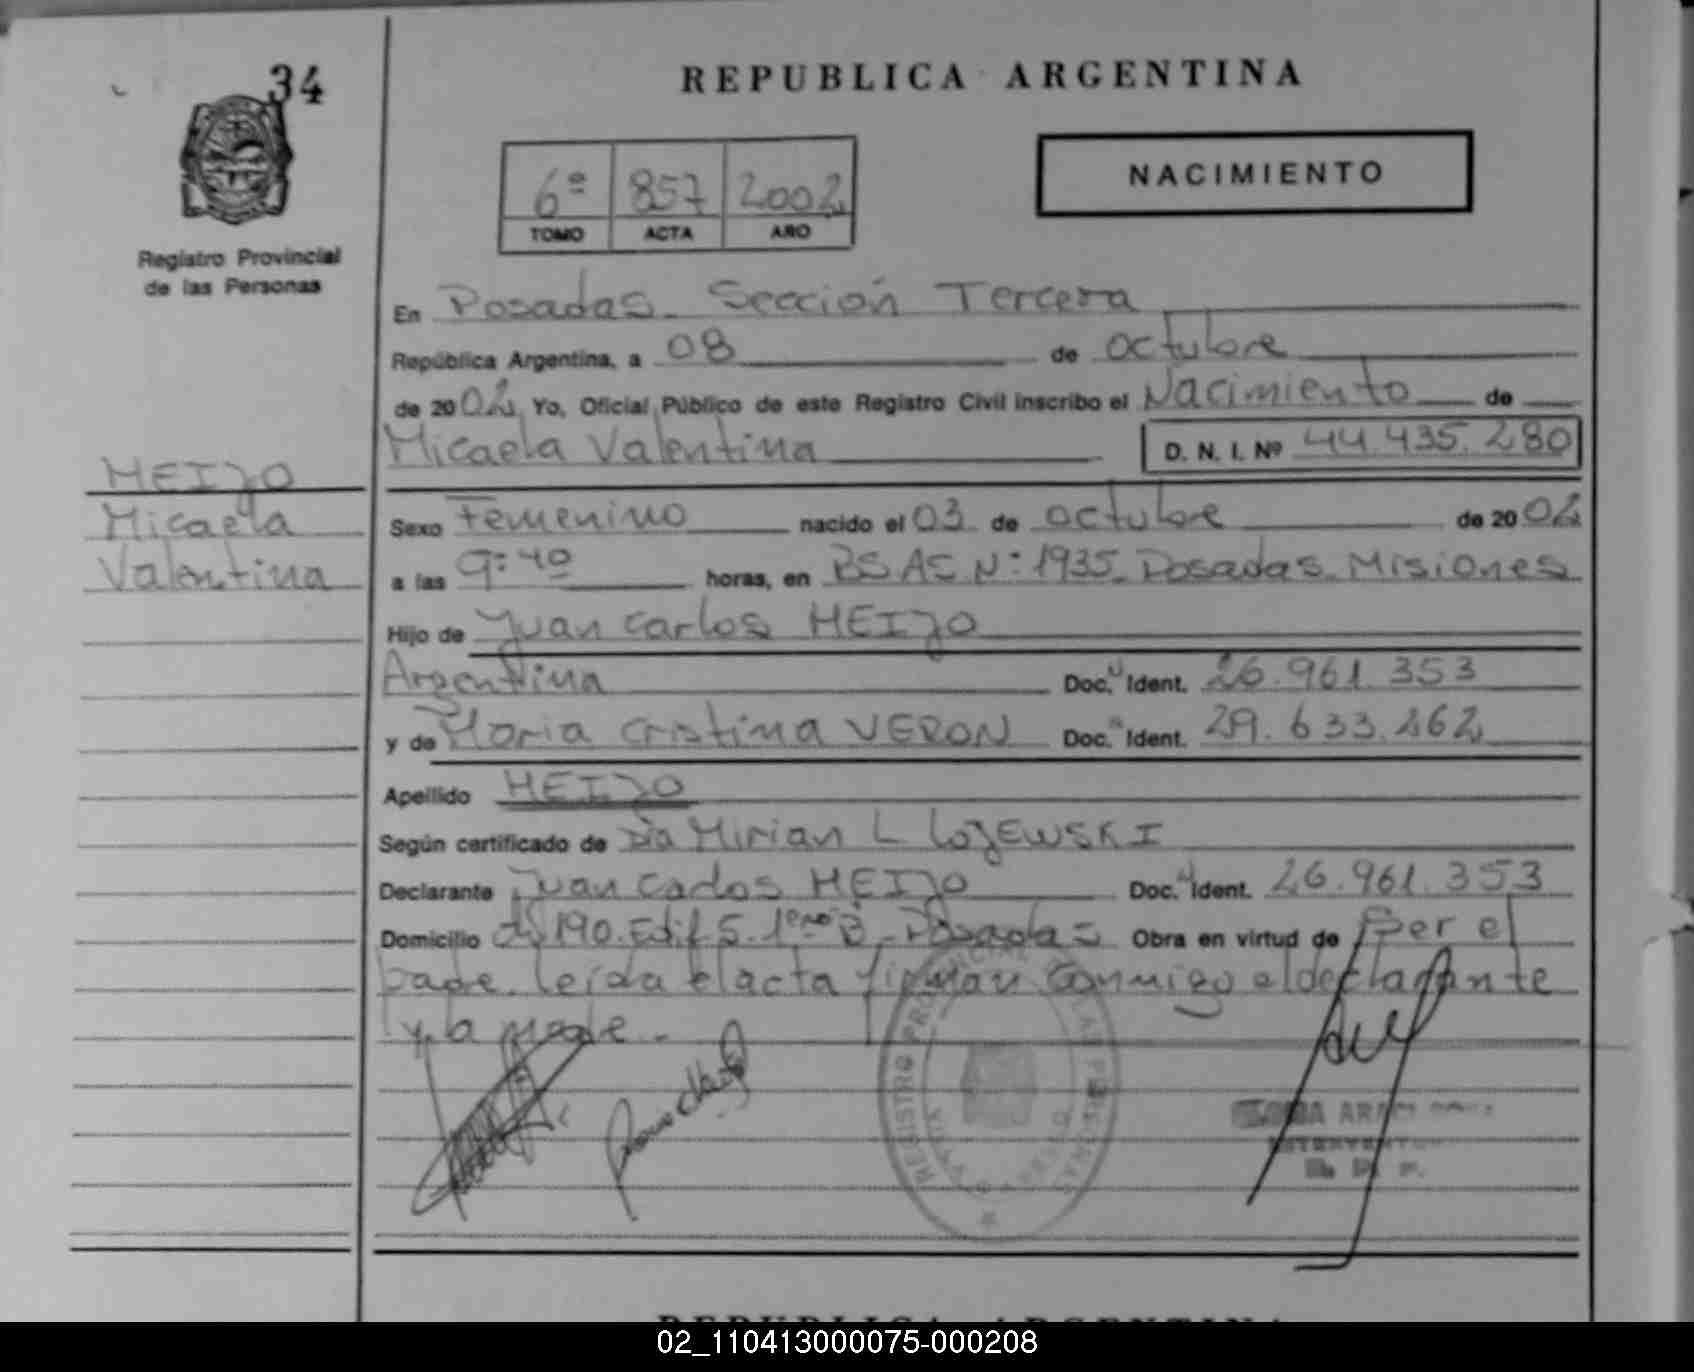 34
REPUBLICA ARGENTINA
6º 857 2002
TOMO ACTA AÑO
NACIMIENTO
Registro Provincial
de las Personas
En Posadas Sección Tercera
República Argentina, a 08 de octubre
de 2002 Yo, Oficial Público de este Registro Civil inscribo el Nacimiento de
Micaela Valentina D. N. I. Nº 44.435.280
MEIJO
Micaela
Valentina
Sexo Femenino nacido el 03 de octubre de 2002
a las 9:40 horas, en BS.AS N: 1935 Posadas Misiones
Hijo de Juan Carlos MEIJO
Argentina Doc. Ident. 26.961.353
y de María Cristina VERON Doc. Ident. 29.633.262
Apellido MEIJO
Según certificado de Dra Mirian L LOJEWSKI
Declarante Juan Carlos MEIJO Doc. Ident. 26.961.353
Domicilio 190. Edif 5. 1ero B - Posadas Obra en virtud de Ser el
padre. leída el acta firman conmigo el declarante
y la madre.-
REGISTRO PROVINCIAL DE LAS PERSONAS
REPUBLICA ARGENTINA
02_110413000075-000208